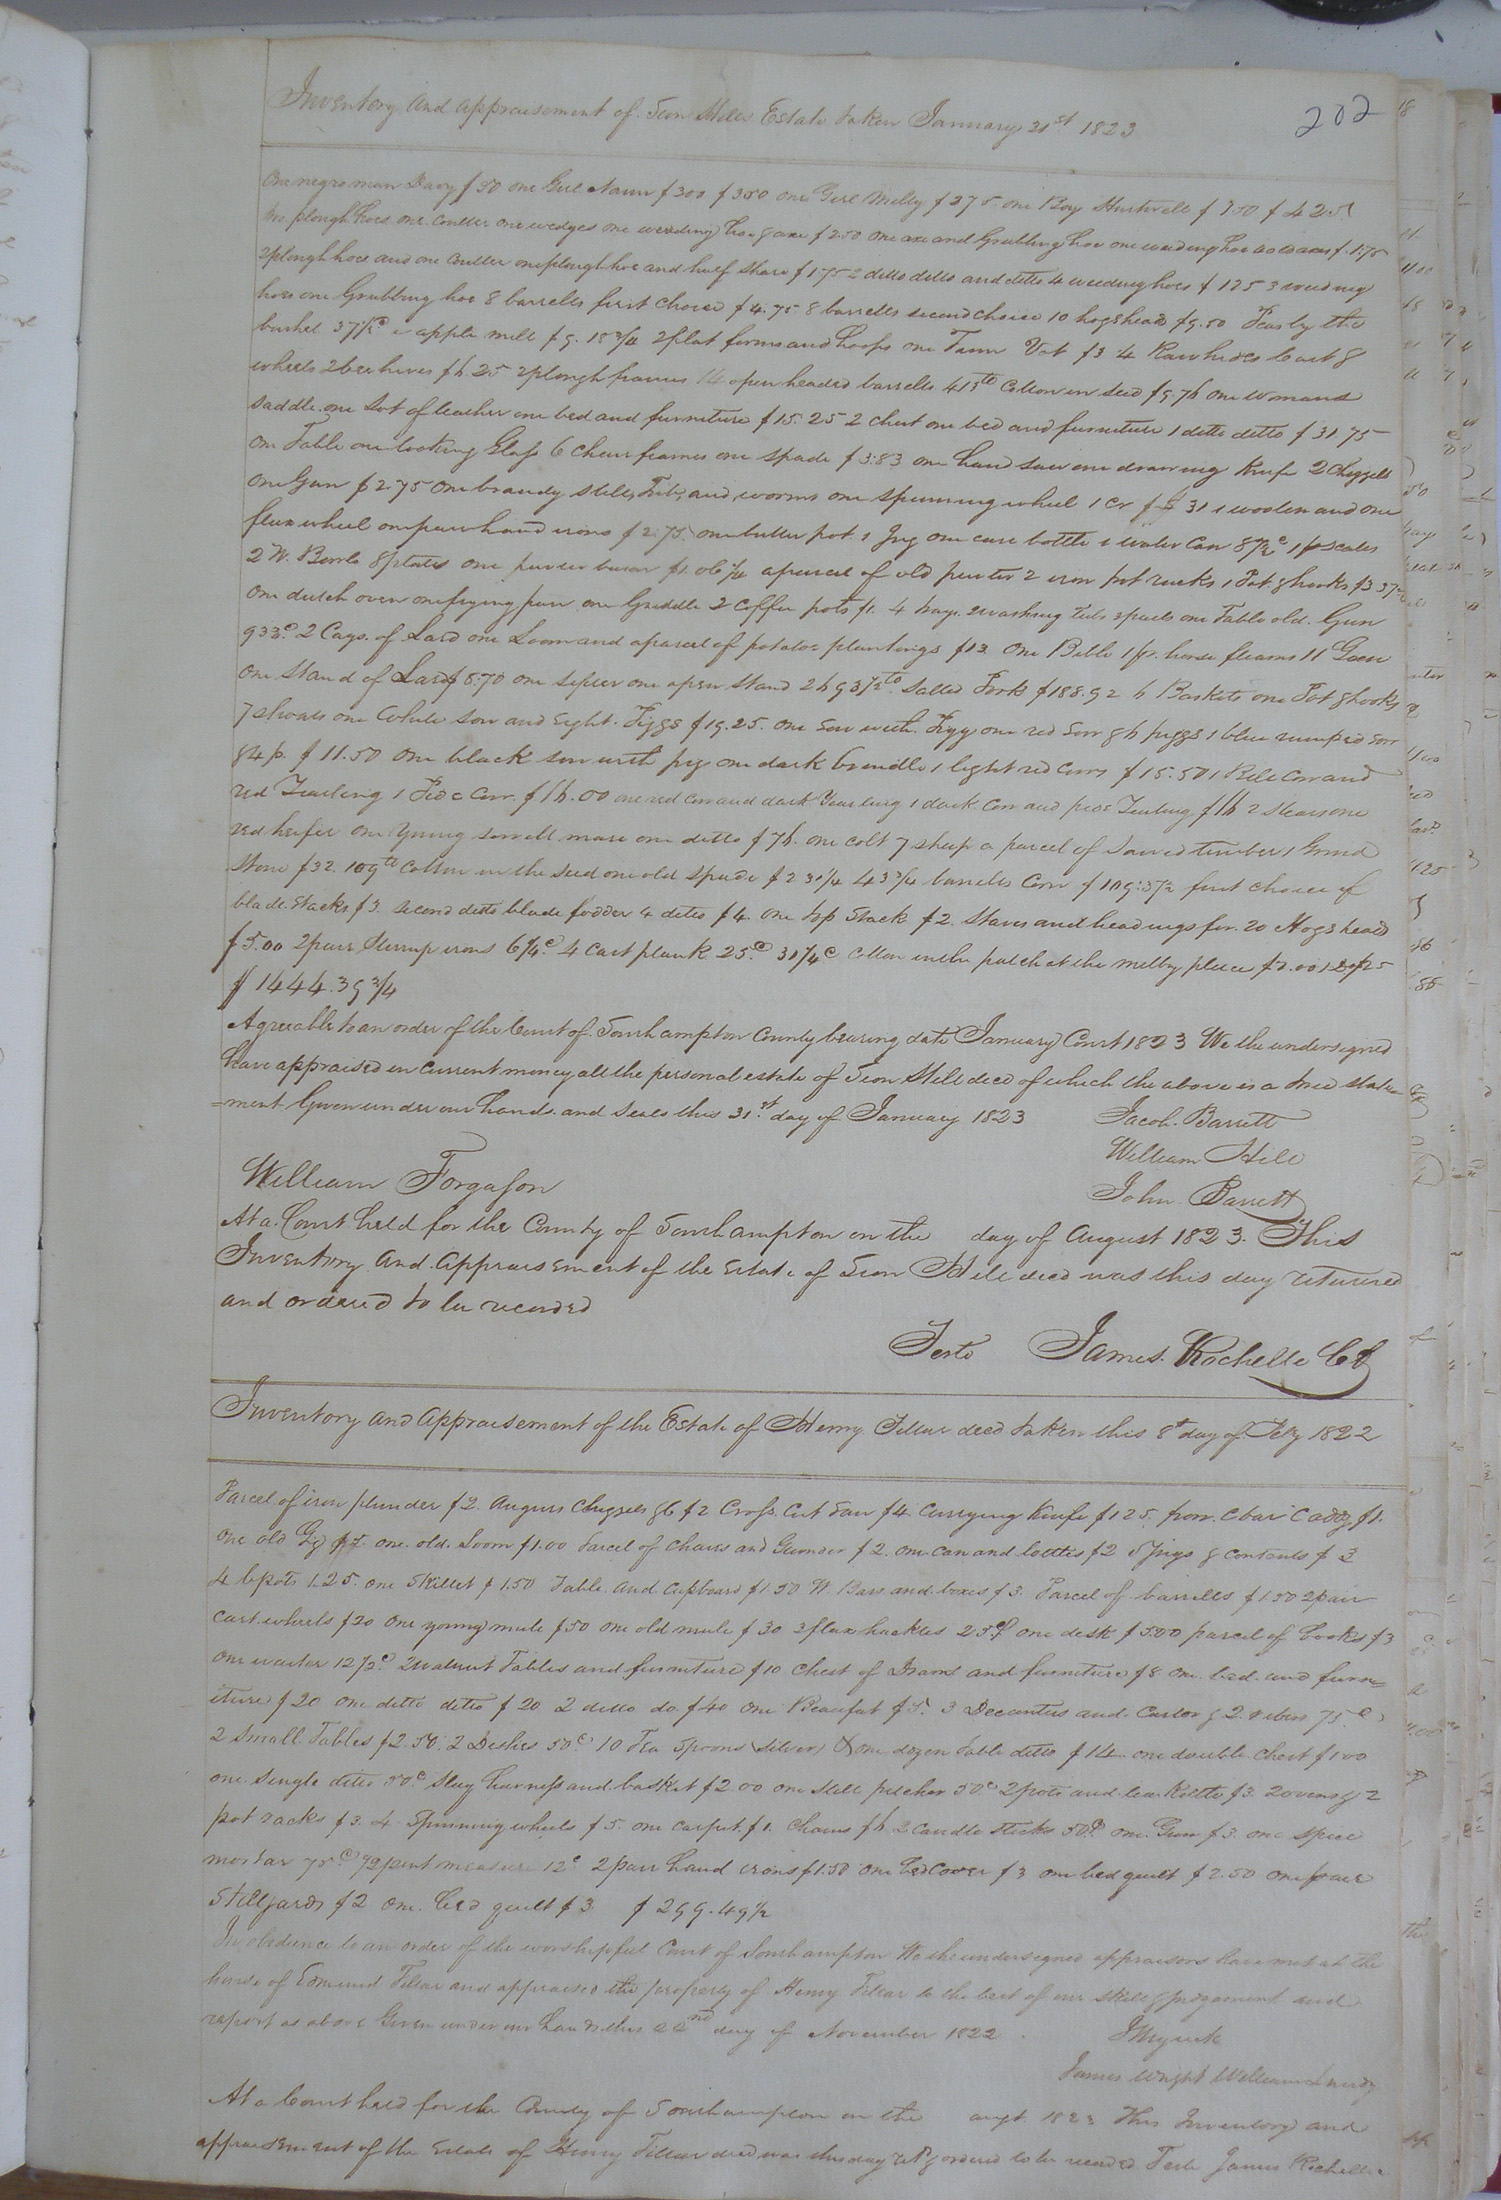 Inventory and appraisement of Sion Hills Estate taken January 31st 1823
202
One negro man Davy $50 one Girl Nann $300 $350 one Girl Milly $275 one Boy $150 $425
two plough hoes one Coulter one wedges one weeding hoe & axe $2.50 one axe and Grubbing hoe one weeding hoe $1.75
2 plough hoes and one Coulter one plough hoe and half share $1.75 2 ditto ditto and ditto 4 weeding hoes $125 3 weeding
hoes one Grubbing hoe 8 barrells first choice $4.75 8 barrells second choice 10 hogsheads $9.50 Peas by the
bushel 37½c 1 apple mill $9.18¾ 2 flat forms and hoops one Tann Vat $3 4 Rawhides Cart &
wheels 2 bee hives $6.25 2 plough frames 14 open headed barrells Cotton in seed $9.76 one womans
saddle one Lot of leather one bed and furniture $15.25 2 chest one bed and furniture 1 ditto ditto $31.75
One Table one looking Glass 6 Chear frames one spade $3.83 one hand saw one drawing Knife 2 Chizzels
One Gun $2.75 One brandy still, Tubs, and worms one spinning wheel 1 Cr $31 1 woolen and one
flax wheel one pair hand irons $2.75 one butter pot 1 Jug one case bottle 1 water Can 87½c 1 pr Scales
2 W. Bowls 8 plates one pewter bason $1.06¼ a parcel of old pewter 2 iron pot racks 1 Pot & hooks $3.37½
One dutch oven one frying pan one Griddle 2 Coffee pots $1. 4 trays 2 washing Tubs 2 pails one Table old Gun
93¾c 2 Cags of Lard one Loom and a parcel of potatoe plantings $13 One Bell 1 pr. horse fleams 11 Geese
One Stand of Lard $8.70 one sifter one open Stand Salted Pork $188.92 6 Baskets one Pot & hooks
7 shoats one White Sow and Eight Piggs $19.25. One Sow with Pigg one red Sow & 6 piggs 1 blue rumped Sow
& 4 p. $11.50 One black sow with pig one dark brindle 1 light red Cows $15.50 1 Cow and
red Yearling 1 Cow $16.00 one red Cow and dark Yearling 1 dark Cow and Yearling $16 2 Stears one
red heifer one Young sorrell mare one ditto $76. one Colt 7 sheep a parcel of Sawed timber 1 Grind
Stone $32. Cotton in the seed one old spade $2.31¼ 43¾ barrels Corn $109.37½ first choice of
blade Stacks $3. second ditto blade fodder 4 ditto $4. One top Stack $2. Staves and headings for 20 Hogsheads
$5.00 2 pair Sterrup irons 6¼c 4 Cart plank 25c 31¼c Cotton in the patch at the Milby place $2.00
$1444.39¾
Agreeable to an order of the Court of Southampton County bearing date January Court 1823 We the undersigned
have appraised in Current money all the personal estate of Sion Hill decd of which the above is a true state
=ment Given under our hands and seals this 31st day of January 1823
Jacob Barrett
William Hill
William Forgason
John Barrett
At a Court held for the County of Southampton on the day of August 1823. This
Inventory and Appraisement of the Estate of Sion Hill decd was this day returned
and ordered to be recorded
Teste James Rochelle CC
Inventory and Appraisement of the Estate of Henry Tillar decd taken this 8th day of Feby 1822
Parcel of iron plunder $2. Augurs Chizzels $2 Cross Cut Saw $4. Currying Knife $1.25 $1.
One old Gig one old Loom $1.00 Parcel of Chairs and $2. one Can and bottles $2 5 Jugs & contents $3
4 1.25. one Skillet $1.50 Table and Cupboard $1.50 W. Bars and boxes $3. Parcel of barrells $1.50 2 pair
Cart wheels $20 One young mule $50 one old mule $30 3 flax hackles 25c one desk $5.00 parcel of books $3
One waiter 12½c 2 walnut Tables and furniture $10 Chest of Draws and furniture $8 One bed and furn=
iture $20 one ditto ditto $20 2 ditto do. $40 one Beaufat $5. 3 Decanters and Castor 75c
2 Small Tables $2.50. 2 Dishes 50c 10 Tea Spoons (Silver) & one dozen table ditto $14 one double Chest $1.00
one single ditto 50c Slay harness and basket $2.00 one Still pitcher 50c 2 pots and tea Kittle $3. 2 ovens & 2
pot racks $3. 4 Spinning wheels $5. one Carpet $1. Chains $6 2 Candle sticks 50c one Gun $3. one spice
mortar 75c ½ pint measure 12c 2 pair hand irons $1.50 one bed Cover $3 one bed quilt $2.50 one pair
Stillyards $2 one bed quilt $3 $299.49½
In obedience to an order of the worshipful Court of Southampton We the undersigned appraisors have met at the
house of Edmund Tillar and appraised the property of Henry Tillar to the best of our skill & judgement and
report as above Given under our hands this 22nd day of November 1822
J Myrick
James Wright William
At a Court held for the County of Southampton on the augt. 1823 This Inventory and
appraisement of the Estate of Henry Tillar decd was this day retd & ordered to be recorded Teste James Rochelle